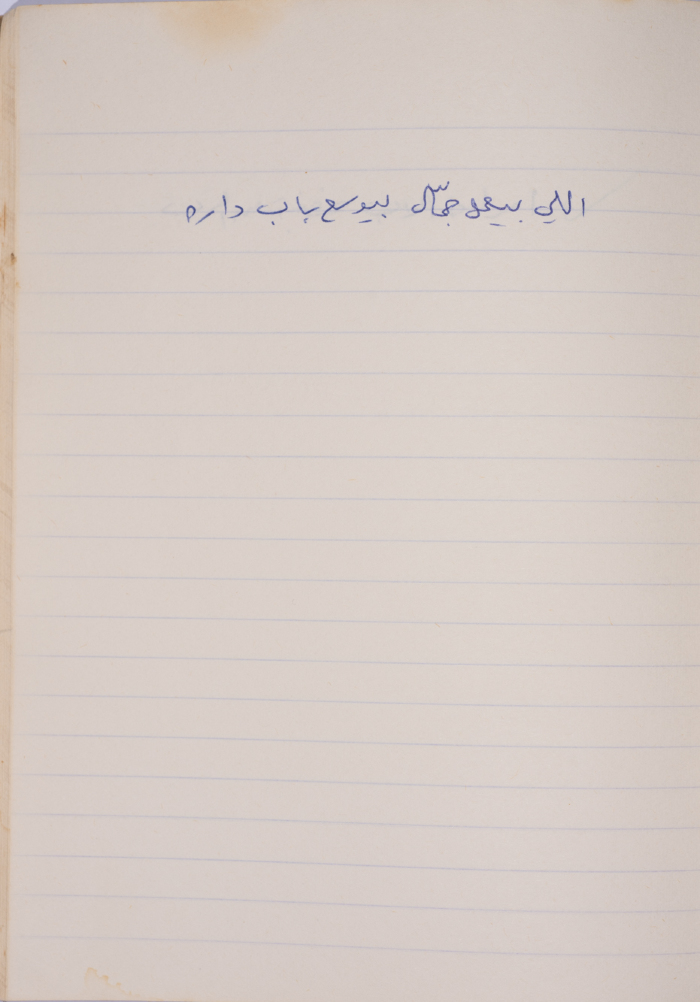 اللي بيعمل جمّال بيوسع باب داره